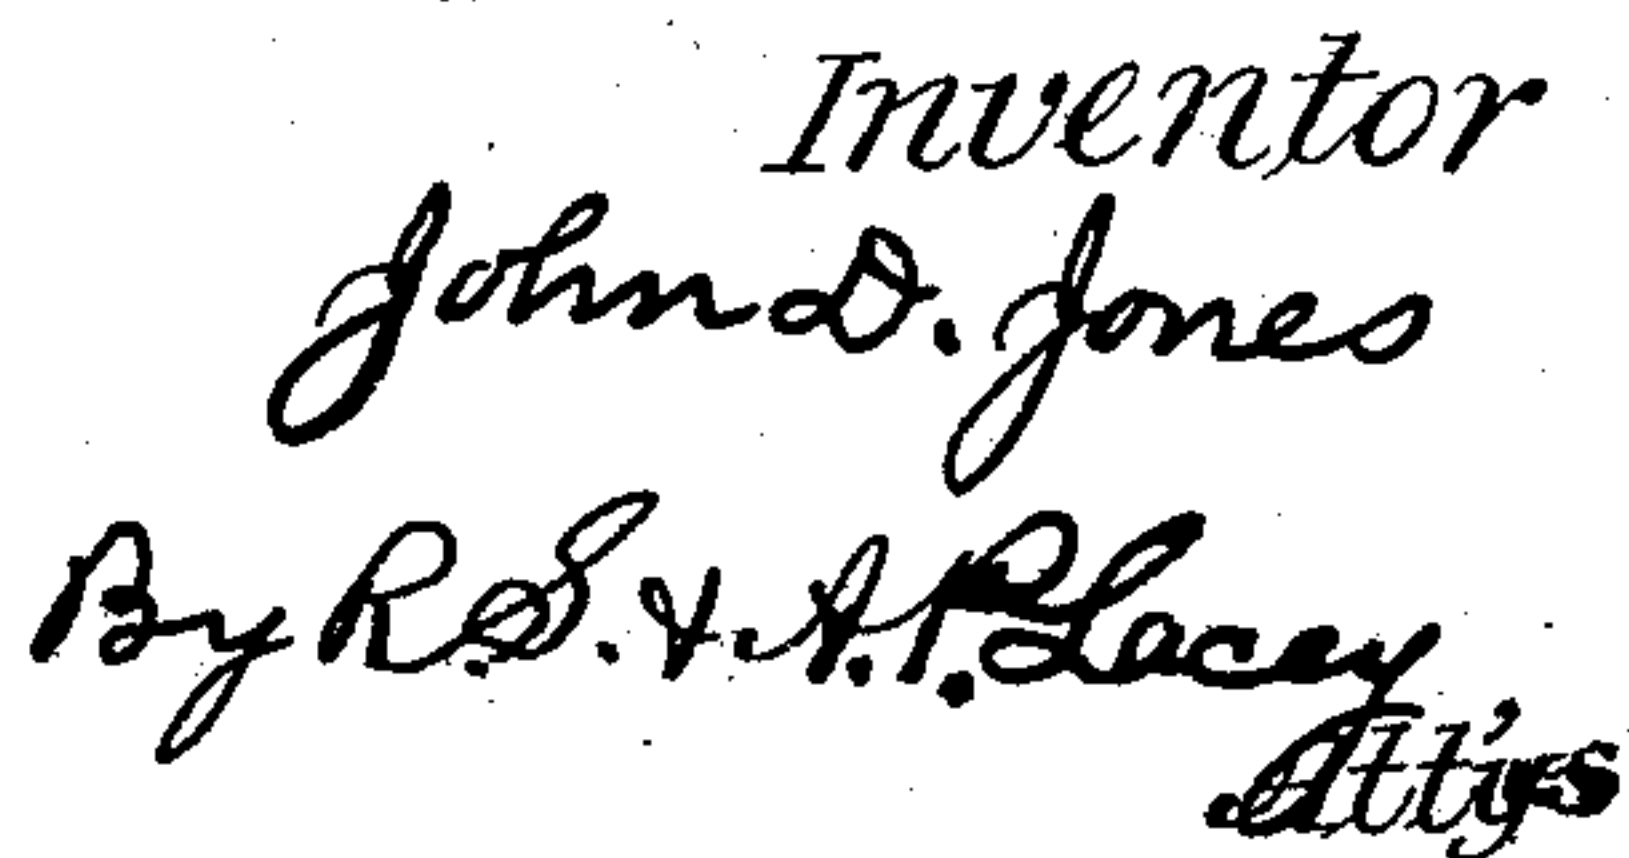 Inventor
John D. Jones
By R.S. & A.P. Lacey
Att'ys